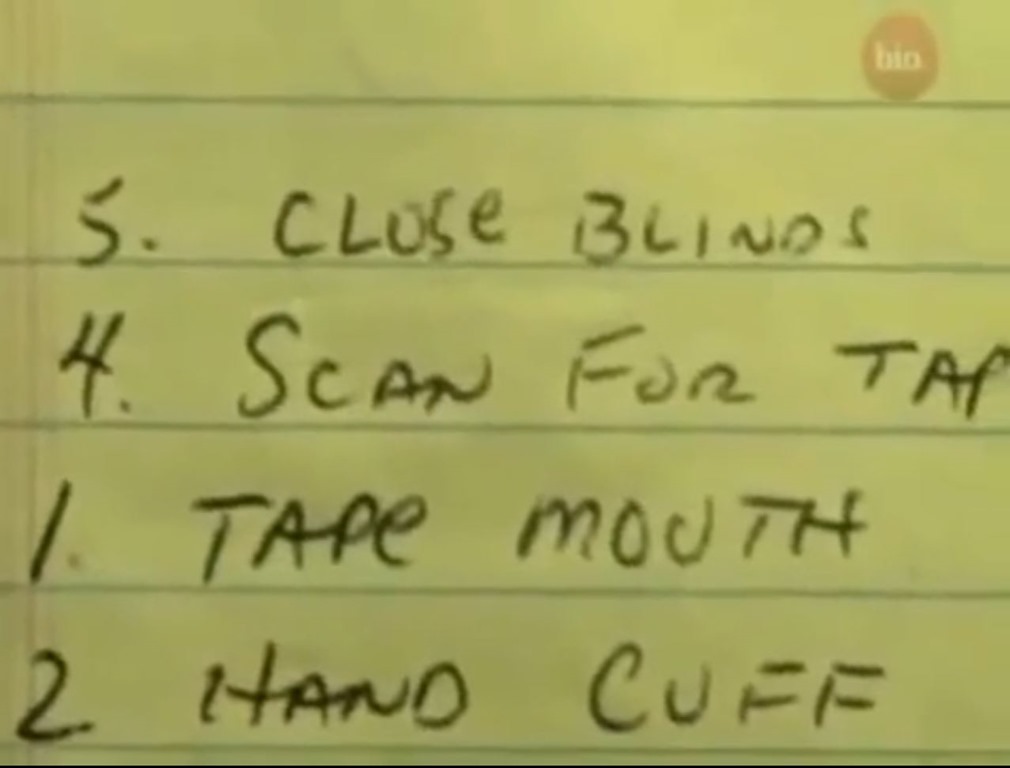 bio.
5. CLOSe BLINDS
4. SCAN FOR TAP
1. TAPe MOUTH
2 HAND CUFF